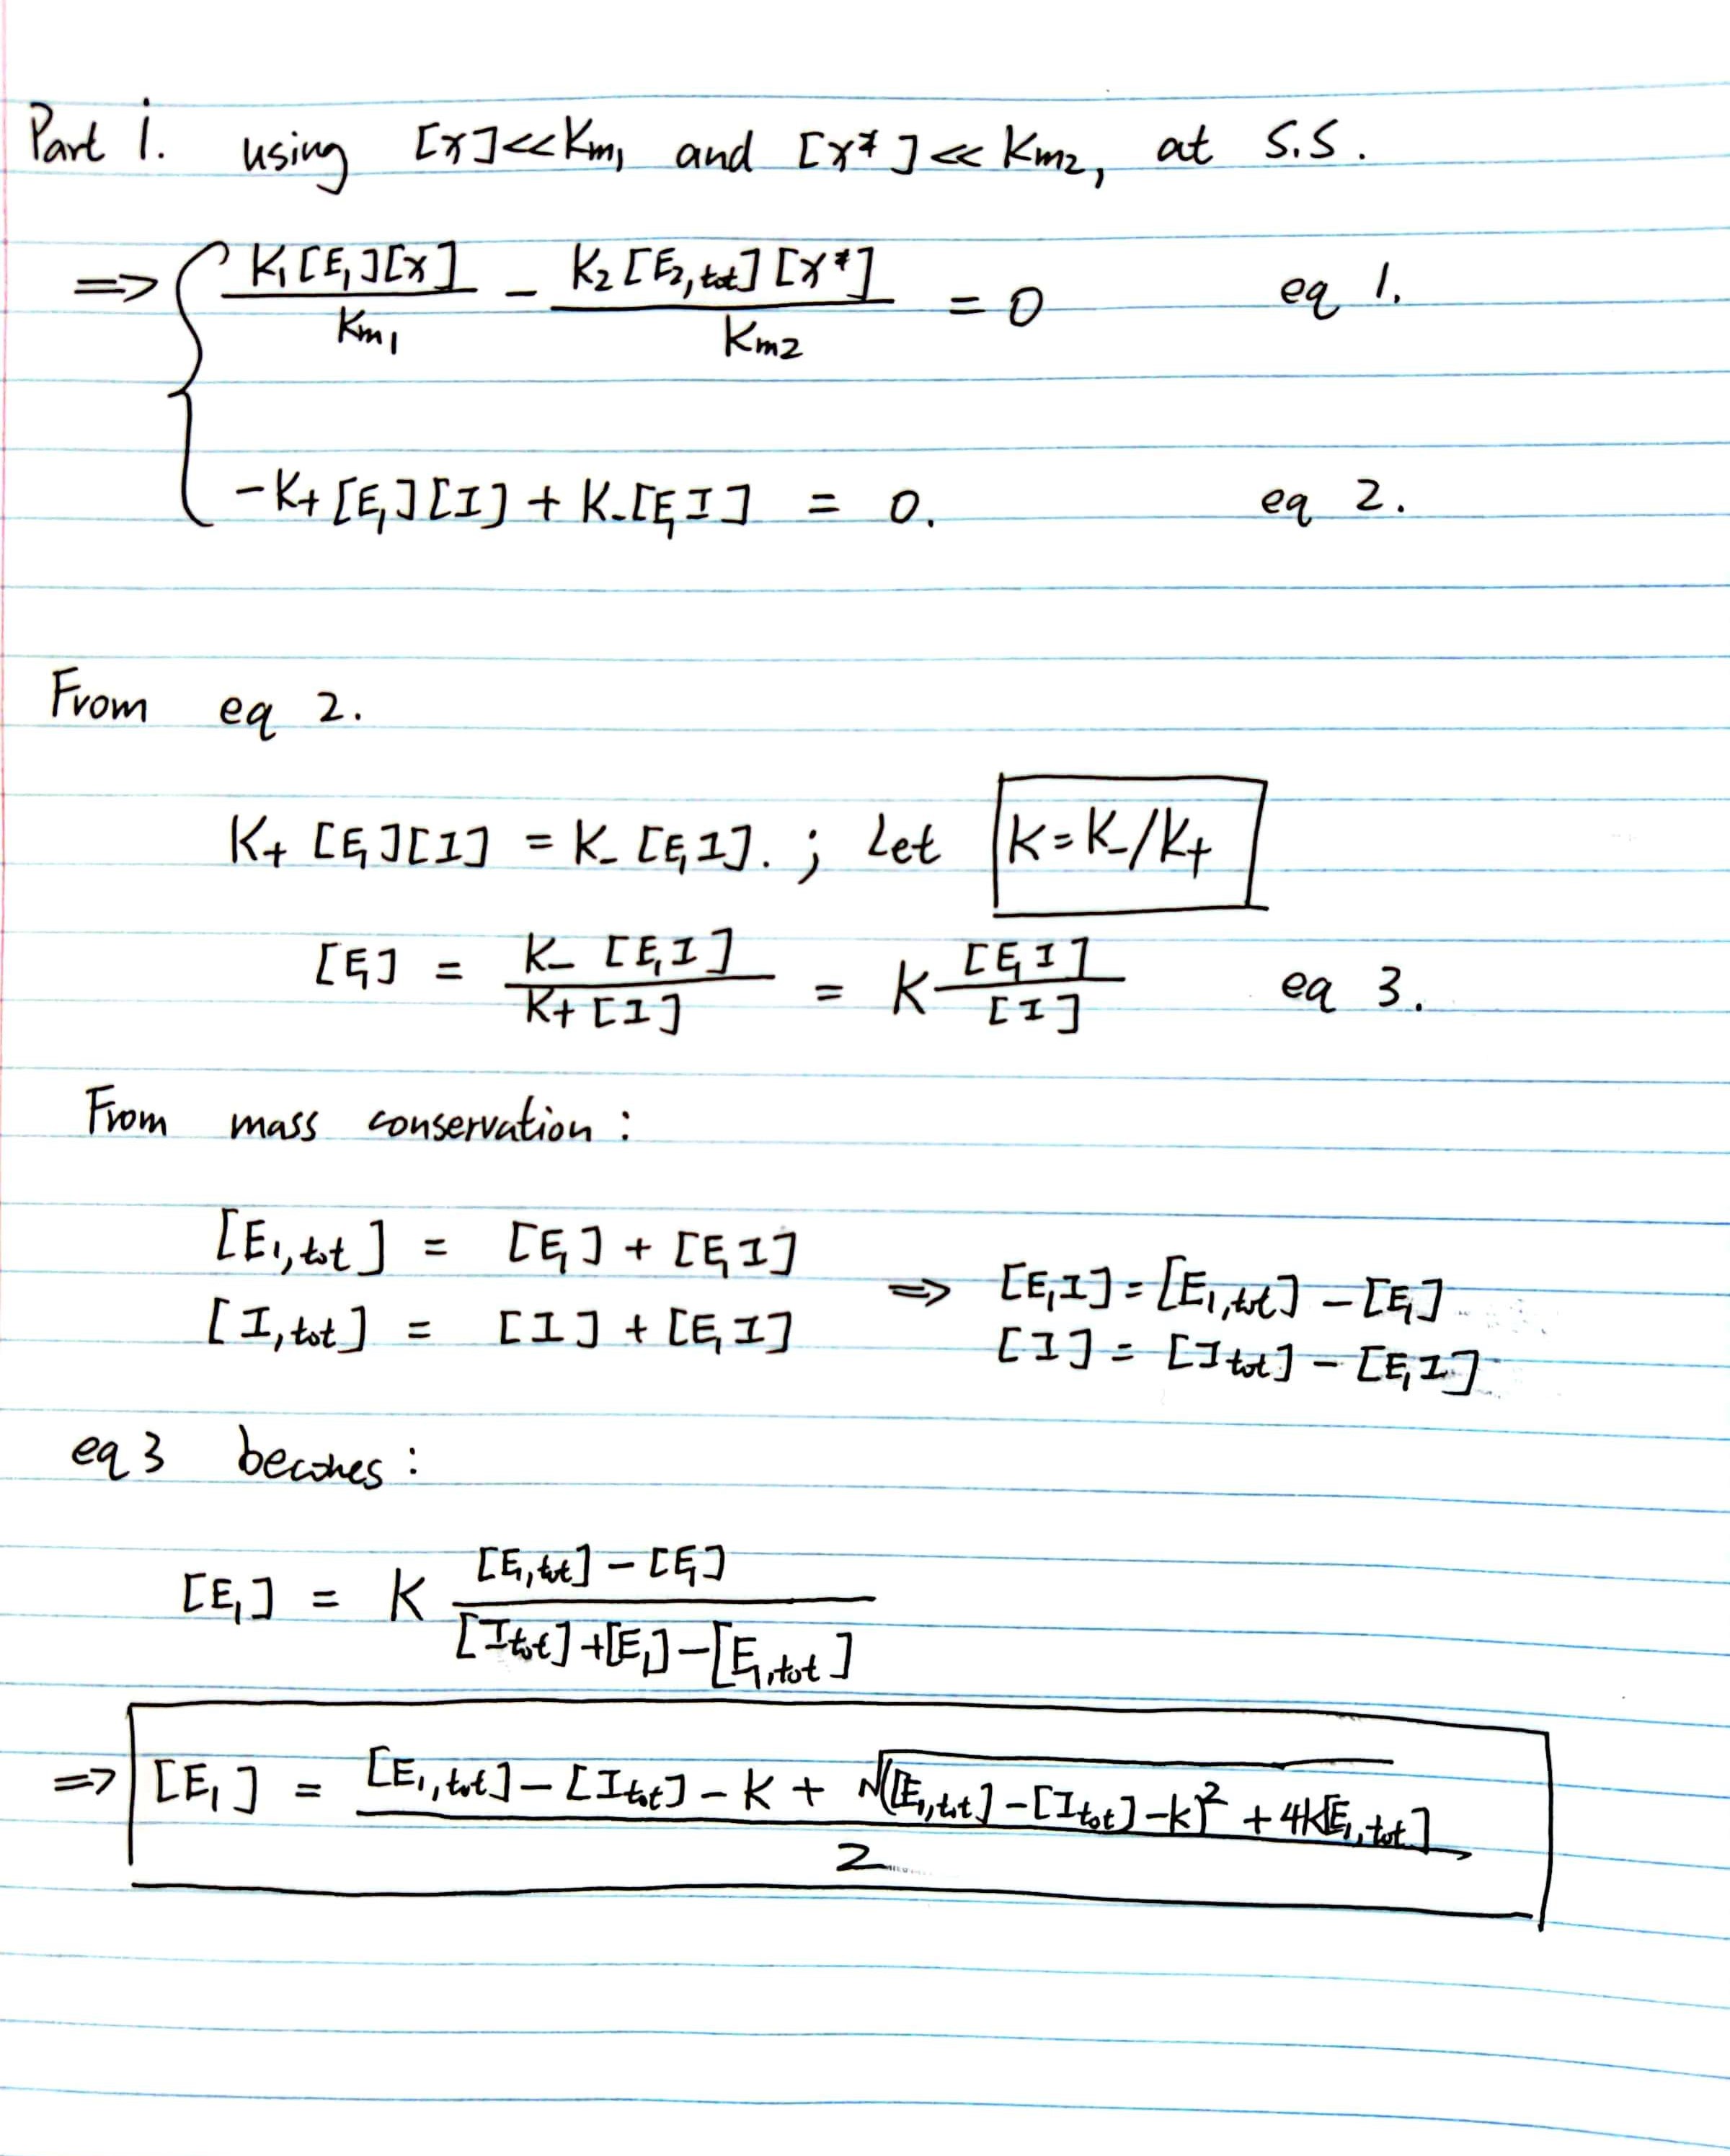 Part 1. using [x]<<Km1 and [x*]<<Km2, at S.S.
=> { K1[E1][x] / Km1 - K2[E2,tot][x*] / Km2 = 0 eq 1.
-K+[E1][I] + K-[E1I] = 0. eq 2.
From eq 2.
K+ [E1][I] = K- [E1I]. ; Let K=K-/K+
[E1] = K- [E1I] / K+ [I] = K [E1I] / [I] eq 3.
From mass conservation :
[E1,tot] = [E1] + [E1I]
[I,tot] = [I] + [E1I]
=> [E1I] = [E1,tot] - [E1]
[I] = [Itot] - [E1I]
eq 3 becomes :
[E1] = K [E1,tot] - [E1] / [Itot]+[E1]-[E1,tot]
=> [E1] = [E1,tot] - [Itot] - K + √([E1,tot] - [Itot] - K)² + 4K[E1,tot] / 2